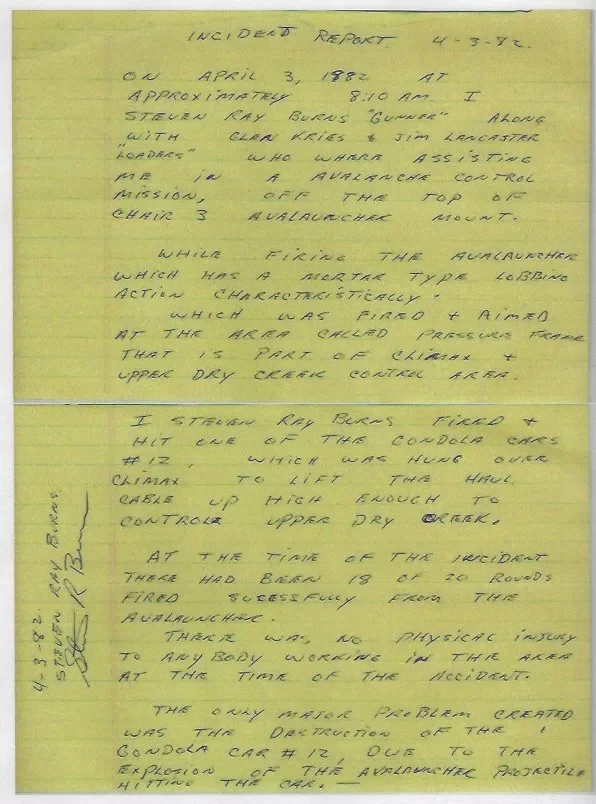 INCIDENT REPORT. 4-3-82.
ON APRIL 3, 1982 AT
APPROXIMATELY 8:10 AM I
STEVEN RAY BURNS "GUNNER" ALONG
WITH GLEN KRIES & JIM LANCASTER
"LOADERS" WHO WHERE ASSISTING
ME IN A AVALANCHE CONTROL
MISSION, OFF THE TOP OF
CHAIR 3 AVALAUNCHER MOUNT.
WHILE FIRING THE AVALAUNCHER
WHICH HAS A MORTAR TYPE LOBBING
ACTION CHARACTERISTICALLY.
WHICH WAS FIRED & AIMED
AT THE AREA CALLED PRESSURE FRAME
THAT IS PART OF CLIMAX &
UPPER DRY CREEK CONTROL AREA.
I STEVEN RAY BURNS FIRED &
HIT ONE OF THE GONDOLA CARS
#12, WHICH WAS HUNG OVER
CLIMAX TO LIFT THE HAUL
CABLE UP HIGH ENOUGH TO
CONTROLE UPPER DRY CREEK.
AT THE TIME OF THE INCIDENT
THERE HAD BEEN 18 OF 20 ROUNDS
FIRED SUCESSFULLY FROM THE
AVALAUNCHER.
THERE WAS NO PHYSICAL INJURY
TO ANYBODY WORKING IN THE AREA
AT THE TIME OF THE ACCIDENT.
THE ONLY MAJOR PROBLEM CREATED
WAS THE DESTRUCTION OF THE
GONDOLA CAR #12, DUE TO THE
EXPLOSION OF THE AVALAUNCHER PROJECTILE
HITTING THE CAR. —
4-3-82.
STEVEN RAY BURNS.
Steven R Burns